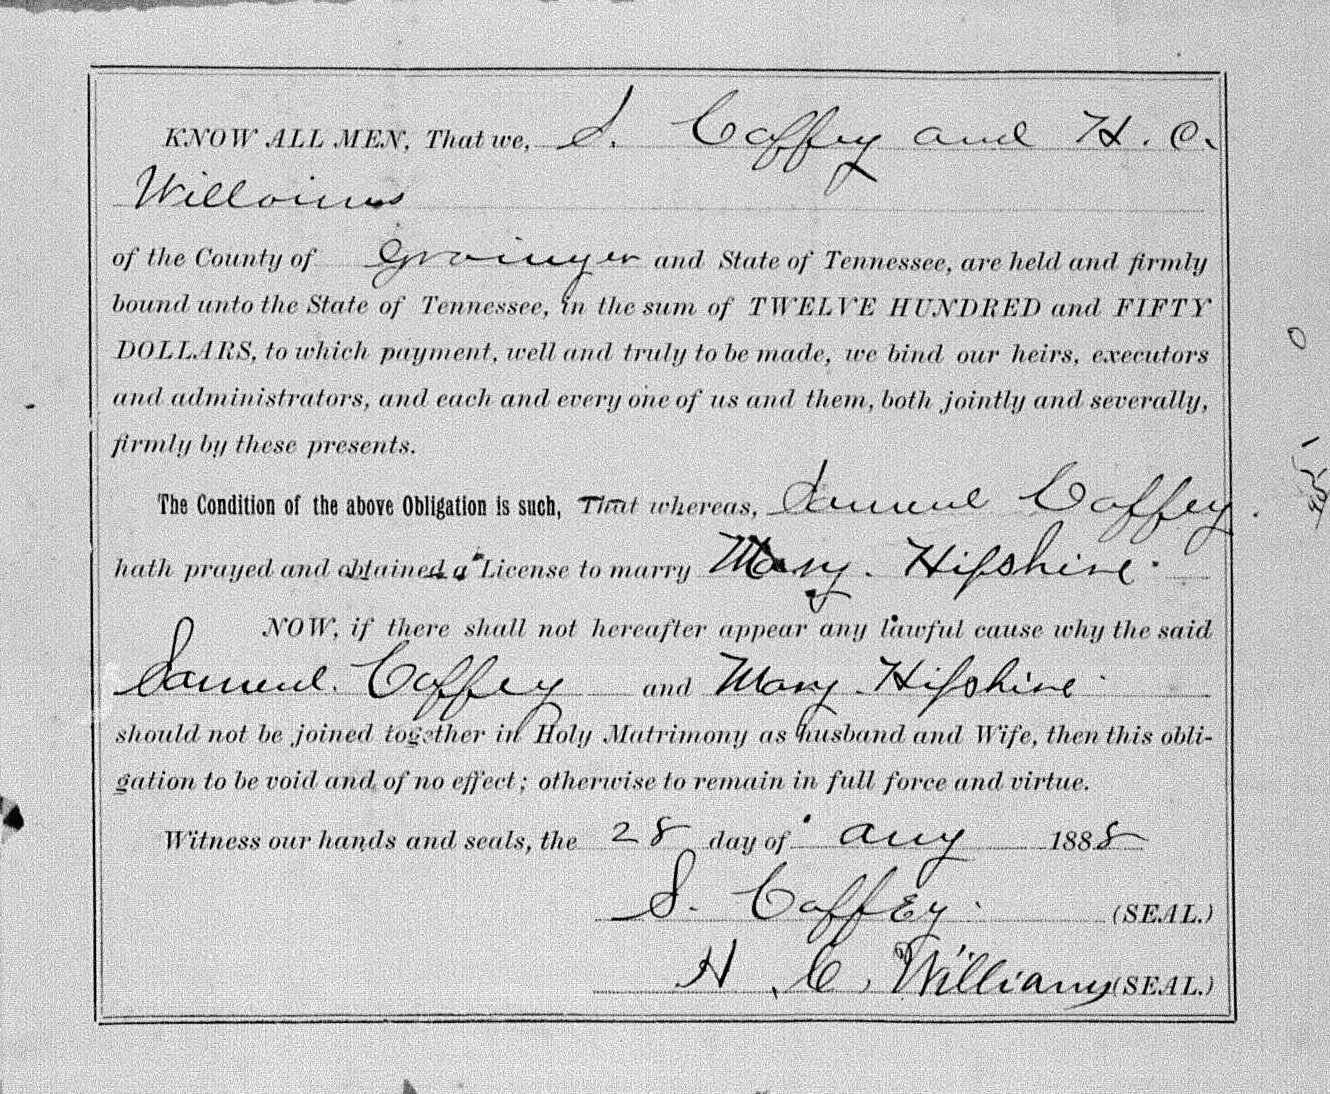 KNOW ALL MEN, That we, S. Coffey and H. C.
Williams
of the County of Grainger and State of Tennessee, are held and firmly
bound unto the State of Tennessee, in the sum of TWELVE HUNDRED and FIFTY
DOLLARS, to which payment, well and truly to be made, we bind our heirs, executors
and administrators, and each and every one of us and them, both jointly and severally,
firmly by these presents.
The Condition of the above Obligation is such, That whereas, Samuel Coffey.
hath prayed and obtained a License to marry Mary Hipshire.
NOW, if there shall not hereafter appear any lawful cause why the said
Samuel Coffey and Mary Hipshire
should not be joined together in Holy Matrimony as husband and Wife, then this obli-
gation to be void and of no effect; otherwise to remain in full force and virtue.
Witness our hands and seals, the 28 day of Aug 1888
S. Coffey (SEAL.)
H. C. Williams (SEAL.)